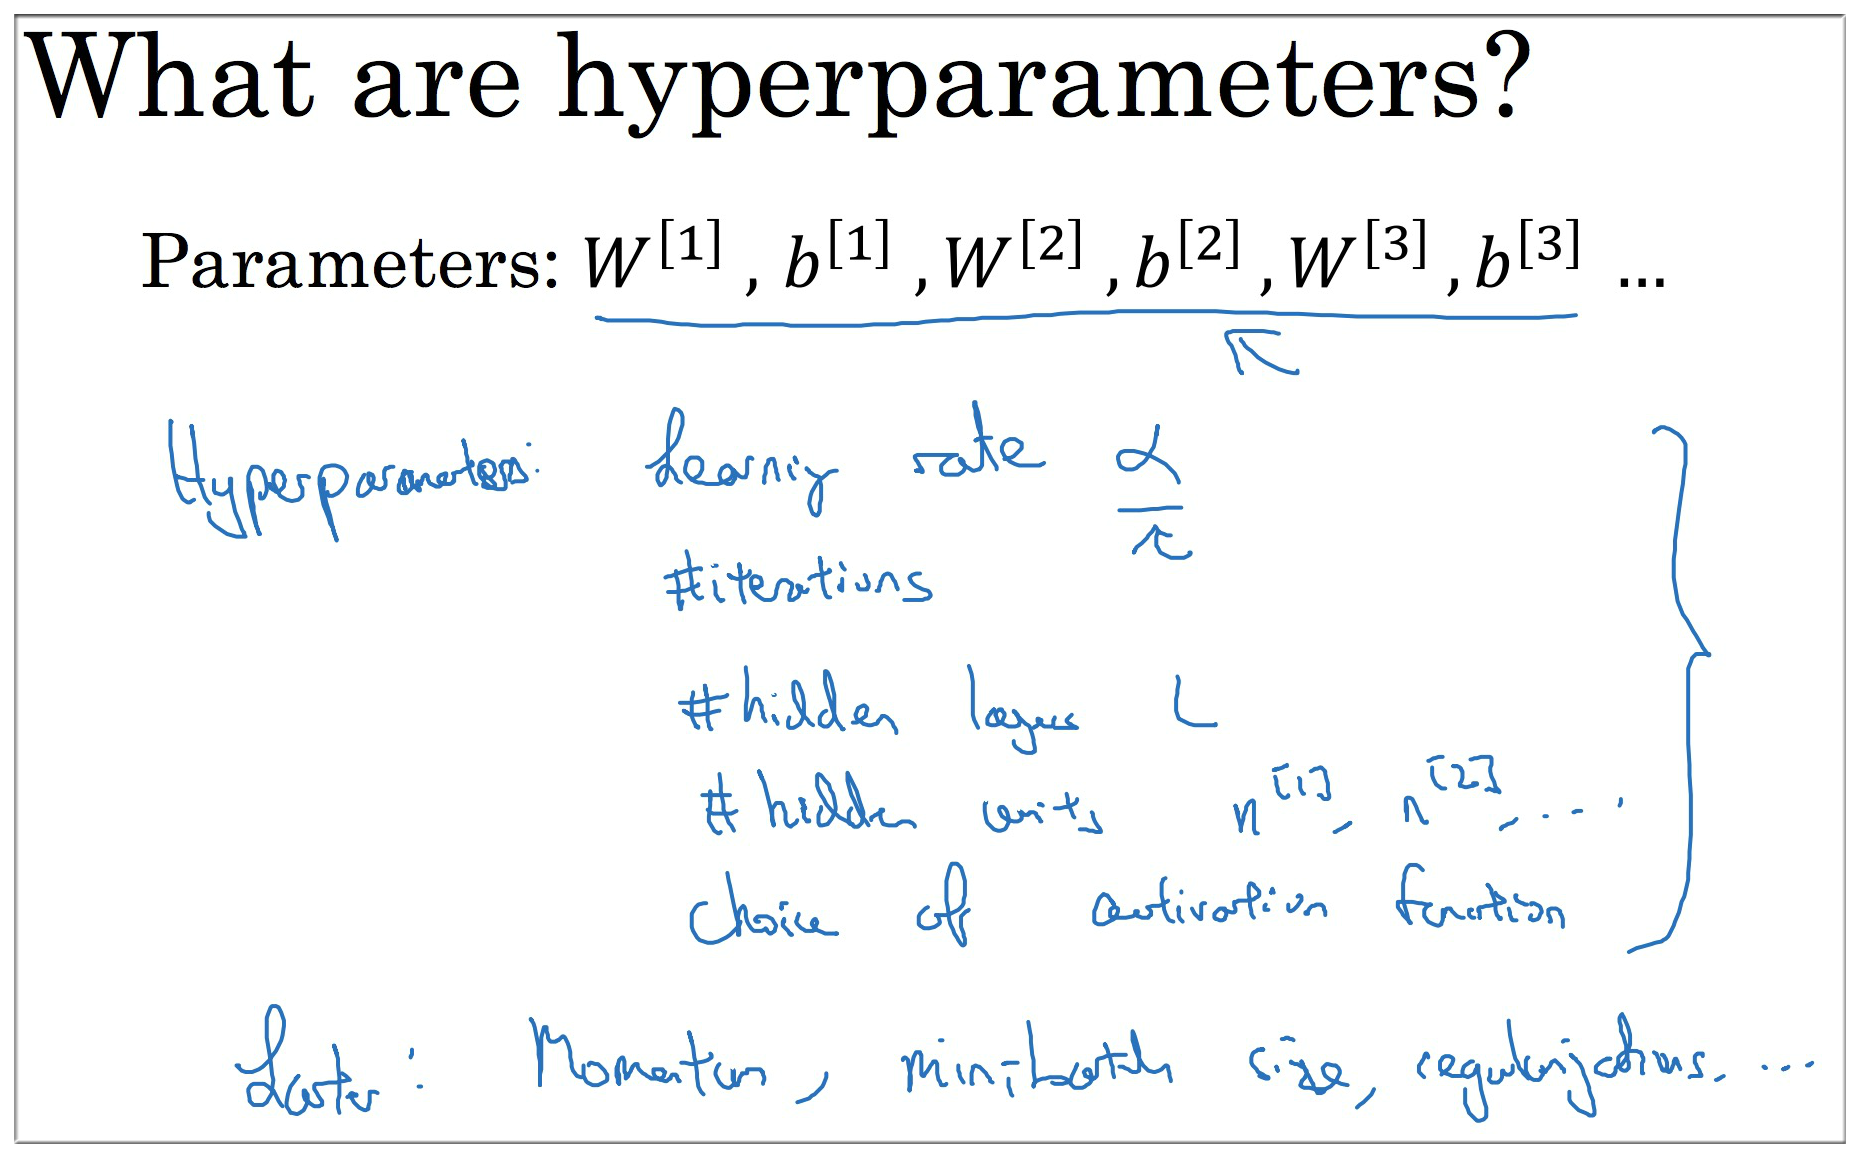 What are hyperparameters?
Parameters: W^[1] , b^[1] , W^[2] , b^[2] , W^[3] , b^[3] ...
Hyperparameters: Learning rate α
#iterations
#hidden layers L
#hidden units n^[1], n^[2], ....
Choice of activation function
Later: Momentum, mini-batch size, regularizations, ...